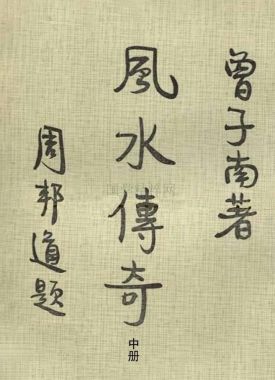 曾子南著
風水傳奇
中册
周邦道題